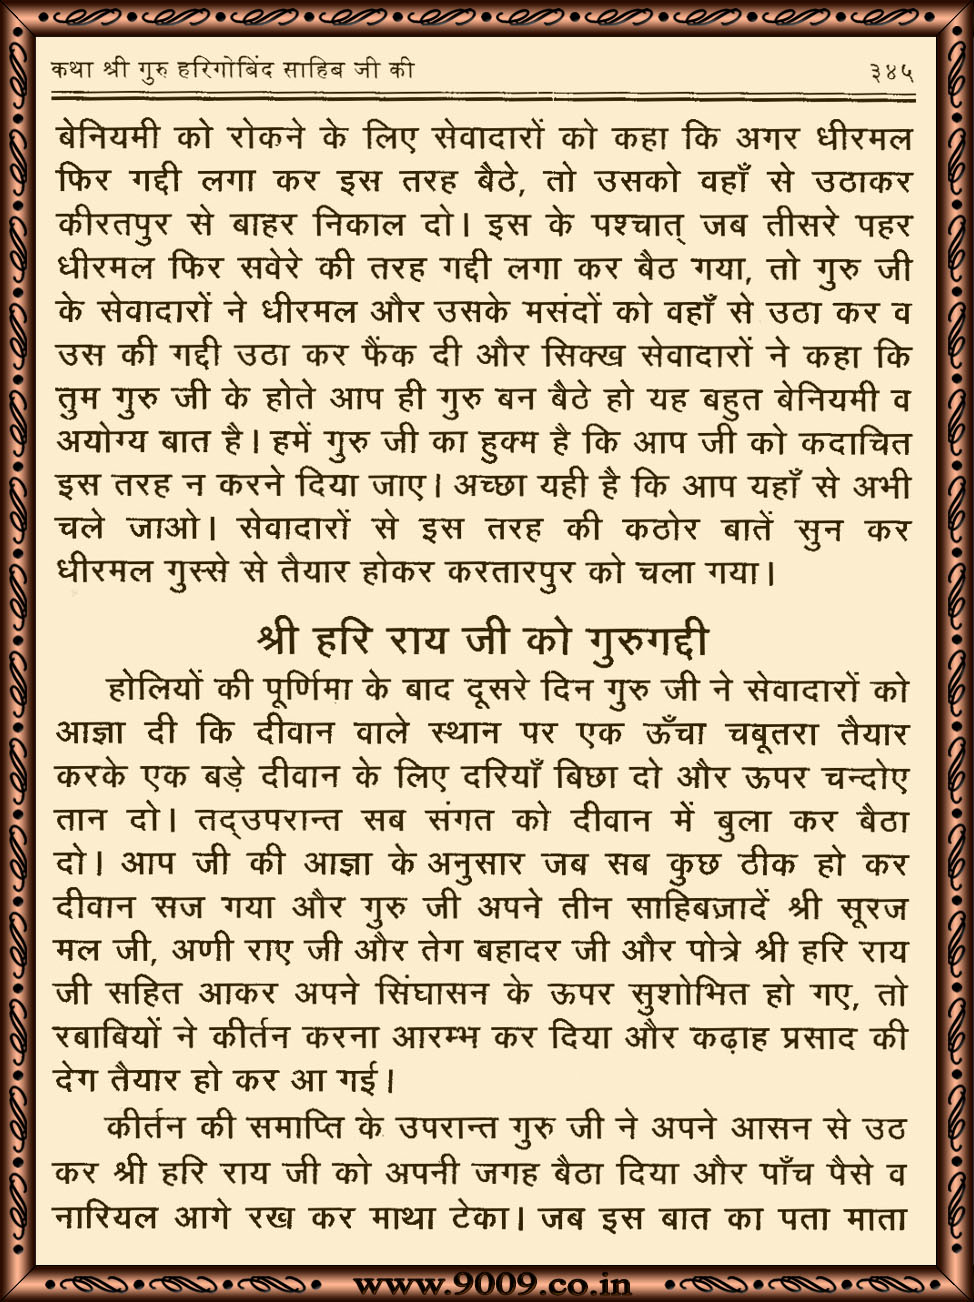 कथा श्री गुरु हरिगोबिंद साहिब जी की ३४५
बेनियमी को रोकने के लिए सेवादारों को कहा कि अगर धीरमल
फिर गद्दी लगा कर इस तरह बैठे, तो उसको वहाँ से उठाकर
कीरतपुर से बाहर निकाल दो। इस के पश्चात् जब तीसरे पहर
धीरमल फिर सवेरे की तरह गद्दी लगा कर बैठ गया, तो गुरु जी
के सेवादारों ने धीरमल और उसके मसंदों को वहाँ से उठा कर व
उस की गद्दी उठा कर फैंक दी और सिक्ख सेवादारों ने कहा कि
तुम गुरु जी के होते आप ही गुरु बन बैठे हो यह बहुत बेनियमी व
अयोग्य बात है। हमें गुरु जी का हुक्म है कि आप जी को कदाचित
इस तरह न करने दिया जाए। अच्छा यही है कि आप यहाँ से अभी
चले जाओ। सेवादारों से इस तरह की कठोर बातें सुन कर
धीरमल गुस्से से तैयार होकर करतारपुर को चला गया।
श्री हरि राय जी को गुरुगद्दी
होलियों की पूर्णिमा के बाद दूसरे दिन गुरु जी ने सेवादारों को
आज्ञा दी कि दीवान वाले स्थान पर एक ऊँचा चबूतरा तैयार
करके एक बड़े दीवान के लिए दरियाँ बिछा दो और ऊपर चन्दोए
तान दो। तद्उपरान्त सब संगत को दीवान में बुला कर बैठा
दो। आप जी की आज्ञा के अनुसार जब सब कुछ ठीक हो कर
दीवान सज गया और गुरु जी अपने तीन साहिबज़ादें श्री सूरज
मल जी, अणी राए जी और तेग बहादर जी और पोत्रे श्री हरि राय
जी सहित आकर अपने सिंघासन के ऊपर सुशोभित हो गए, तो
रबाबियों ने कीर्तन करना आरम्भ कर दिया और कढ़ाह प्रसाद की
देग तैयार हो कर आ गई।
कीर्तन की समाप्ति के उपरान्त गुरु जी ने अपने आसन से उठ
कर श्री हरि राय जी को अपनी जगह बैठा दिया और पाँच पैसे व
नारियल आगे रख कर माथा टेका। जब इस बात का पता माता
www.9009.co.in